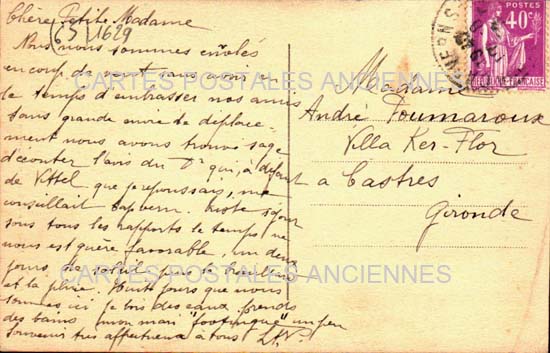 Chère Petite Madame
(65) 1629
Nous nous sommes envolés
en coup de vent sans avoir eu
le temps d'embrasser nos amis
Sans grande envie de déplace-
ment nous avons trouvé sage
d'écouter l'avis du Dr qui, à défaut
de Vittel que je repoussais, me
conseillait Capvern. Triste séjour
sous tous les rapports le temps ne
nous est guère favorable, un deux
jours de soleil puis le brouillard
et la pluie. Huit jours que nous
sommes ici je bois des eaux prends
des bains mon mari "footingue" un peu
Souvenir très affectueux à tous
Madame
André Doumaroux
Villa Ker-Flor
a Castres
Gironde
POSTES
40c
REPUBLIQUE FRANÇAISE
CARTES POSTALES ANCIENNES
CARTES POSTALES ANCIENNES